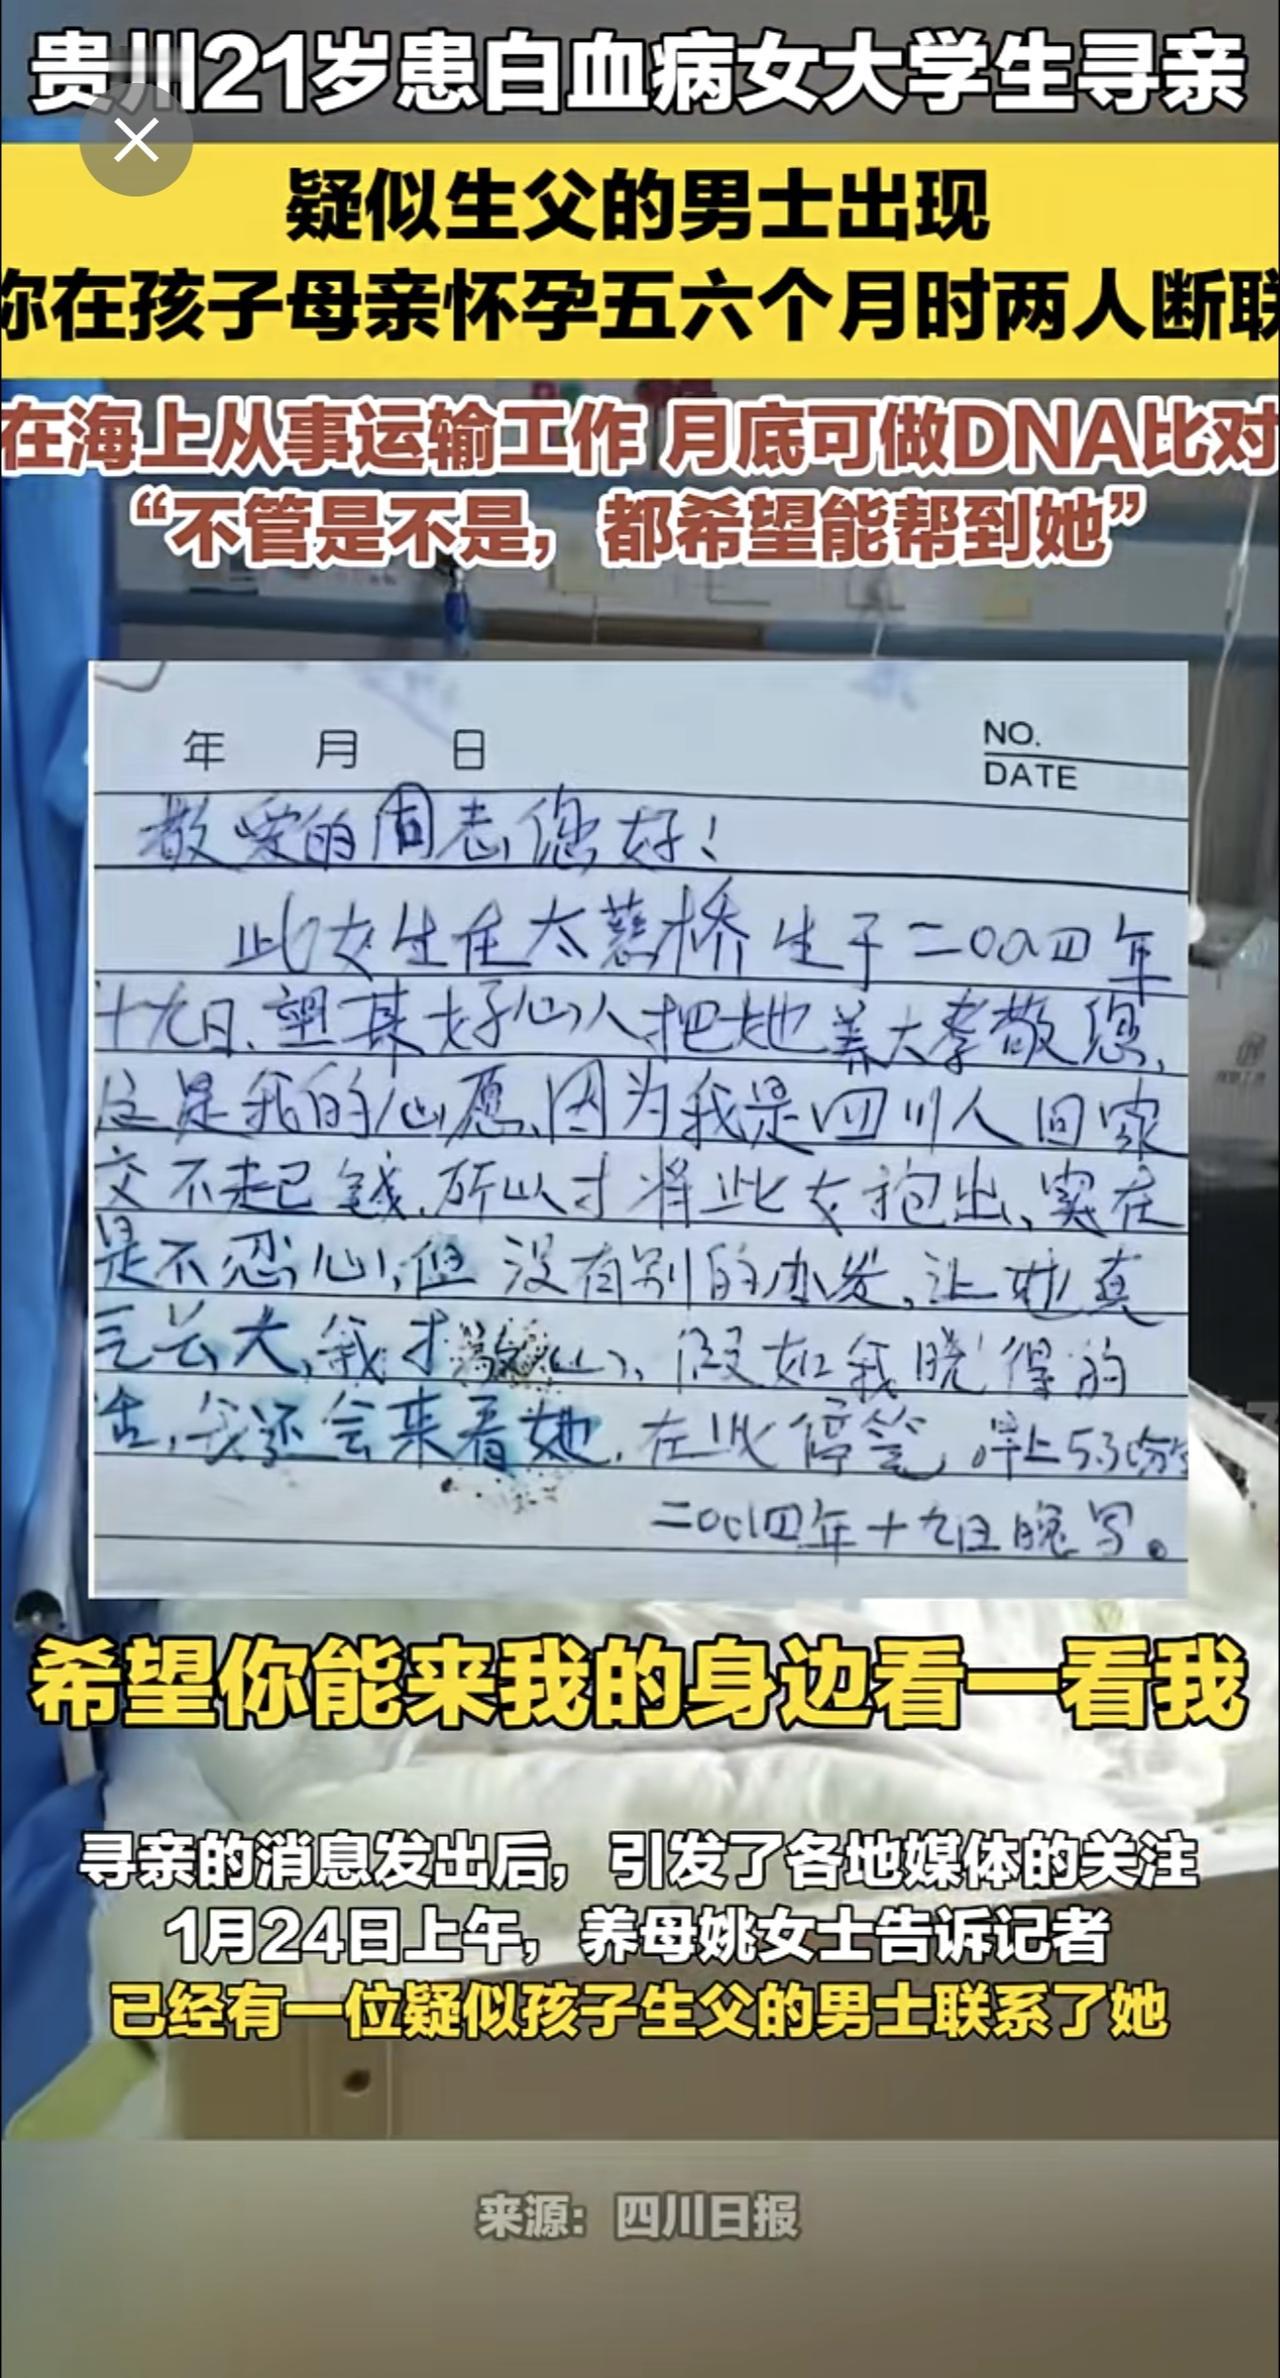 贵州21岁患白血病女大学生寻亲
疑似生父的男士出现
称在孩子母亲怀孕五六个月时两人断联
在海上从事运输工作 月底可做DNA比对
“不管是不是，都希望能帮到她”
年 月 日
NO.
DATE
敬爱的同志您好！
此女生在太慈桥生于二00四年
十九日、望其好心人把她养大孝敬您,
这是我的心愿,因为我是四川人回家
交不起钱,所以才将此女抱出、实在
是不忍心,但没有别的办发,让她真
长大,我才 心、假如我晓得的
话,我还会来看她.在此停笔 早上5.30分
二00四年十九日晚写。
希望你能来我的身边看一看我
寻亲的消息发出后，引发了各地媒体的关注
1月24日上午，养母姚女士告诉记者
已经有一位疑似孩子生父的男士联系了她
来源：四川日报